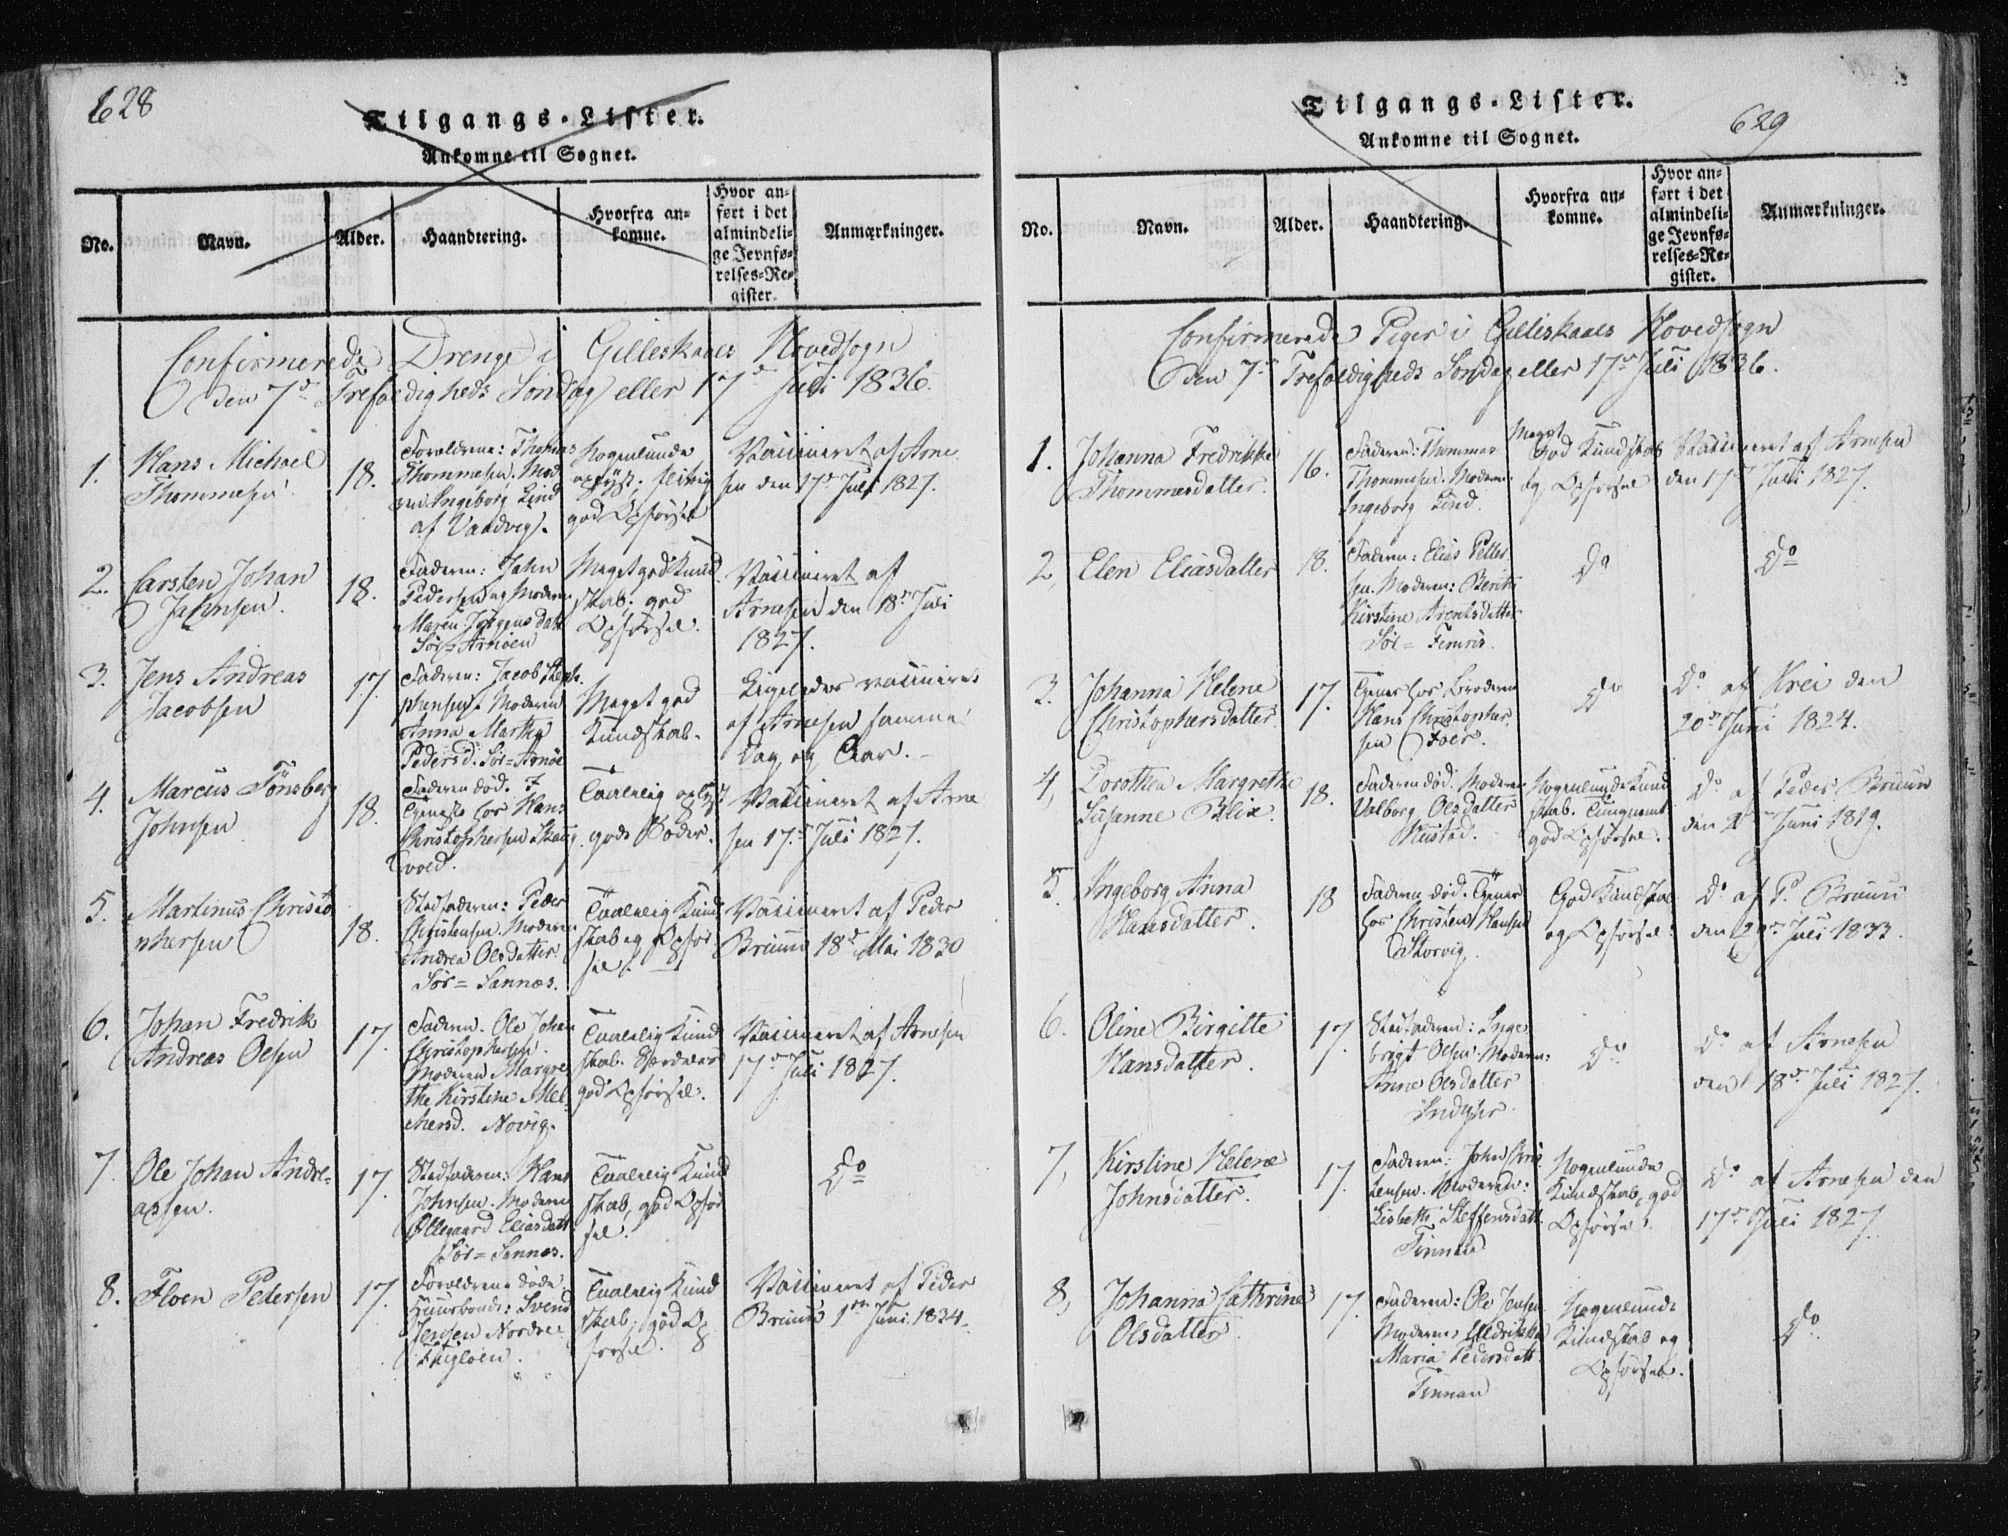 628
Tilgangs-Lister.
Ankomne til Sognet.
No.
Navn.
Alder.
Haandtering.
Hvorfra an-
komne.
Hvor an-
ført i det
almindeli-
ge Jevnfø-
relses-Re-
gister.
Anmærkninger.
Confirmerede Drenge i Gilleskaals Hovedsogn
den 7de Trefoldigheds Søndag eller 17de Juli 1836.
1.
Hans Michael
Thommesen
18.
Forældrene: Thomas
Thommesen. Mod
Ingeborg Lind
af Vaadvig.
Nogenlunde
oplyst; flittig
god Opførsel
Vaccineret af Arne
sen den 17de Juli 1827.
2.
Carsten Johan
Jahnsen.
18.
Faderen: Jahn
Pedersen og Moderen
Maren Jørgensdatt
Sør-Arnøen
Meget god Kund
skab; god
Opførsel.
Vaccineret af
Arnesen den 18de Juli
1827.
3.
Jens Andreas
Jacobsen
17.
Faderen: Jacob Steph
phensen. Moderen
Anna Martha
Pedersd. Sør-Arnöe
Meget god
Kundskab.
Ligeledes vaccineret
af Arnesen samme
Dag og Aar.
4.
Marcus Tönsberg
Johnsen
18.
Faderen död.
Tjeneste hos Hans
Christophersen Skaug
vold.
Taalelig oplyst
gode Sæder.
Vaccineret af Arne
sen 17de Juli 1827.
5.
Martinus Christo
phersen
18.
Stedfaderen: Peder
Christensen. Moderen
Andrea Olsdatter
Sör=Sannes.
Taalelig Kund
skab og Opfør
sel.
Vaccineret af Peder
Bruun 18de Mai 1830
6.
Johan Fredrik
Andreas Olsen
17.
Faderen. Ole Johan
Christophersen.
Moderen Margre
the Kirstine Mel
chersd. Novig.
Taalelig Kund
skab.
god Opførsel.
Vaccineret af Arnesen
17de Juli 1827.
7.
Ole Johan Andre-
assen.
17.
Stedfaderen: Hans
Johnsen. Moderen
Ollegaard Eliasdatt
Sör=Sannes.
Taalelig Kund
skab, god Opför
sel.
Do
8.
Floen Pedersen
17.
Forældrene døde.
Huusbonde: Svend
Jensen Nordre
Fugløen.
Taalelig Kund
skab; god Op
førsel.
Vaccineret af Peder
Bruun 1ste Juni 1834.
Tilgangs-Lister.
629
Ankomne til Sognet.
No.
Navn.
Alder.
Haandtering.
Hvorfra an-
komne.
Hvor an-
ført i det
almindeli-
ge Jevnfø-
relses-Re-
gister.
Anmærkninger.
Confirmerede Piger i Gilleskaals Hovedsogn
den 7de Trefoldigheds Søndag eller 17de Juli 1836.
1.
Johanna Fredrikke
Thommesdatter.
16.
Faderen: Thommas
Thommesen. Moderen
Ingeborg Lind.
Meget
God Kundskab
og Opførsel
Vaccineret af Arnesen
den 17de Juli 1827.
2,
Elen Eliasdatter
18.
Faderen: Elias Petter
sen. Moderen: Berith
Kirstine Arentsdatter
Sör-Finnis.
Do
Do
3.
Johanna Helene
Christophersdatter.
17.
Tjener hos Broderen
Hans Christopher
sen Foer.
Do
Do af Krei den
20de Juni 1824.
4,
Dorothea Margrethe
Susanne Blix
18.
Faderen död. Moderen
Valborg Olsdatter
Mustad.
Nogenlunde Kund
skab.
god Opførsel.
Do af Peder Bruun
den Juni 1819.
5.
Ingeborg Anna
Hansdatter.
18
Faderen död. Tjener
hos Christen Hansen
Storvig.
God Kundskab
og Opførsel.
Do af P. Bruun
den Juli 1833.
6.
Oline Birgitte
Hansdatter.
17.
Stedfaderen: Inge
brigt Olsen. Moderen:
Anne Olsdatter
Indyhr.
Do
Do af Arnesen
den 18de Juli 1827.
7,
Kirstine Helene
Johnsdatter.
17.
Faderen: John Chris
tensen. Moderen:
Lisbeth Steffensdatt.
Finnan
Nogenlunde
Kundskab, god
Opførsel.
Do af Arnesen den
17de Juli 1827
8,
Johanna Cathrine
Olsdatter.
17.
Faderen: Ole Jensen
Moderen: Uldrikka
Maria Pedersdatt.
Finnan
Nogenlunde
Kundskab og
Opførsel.
Do